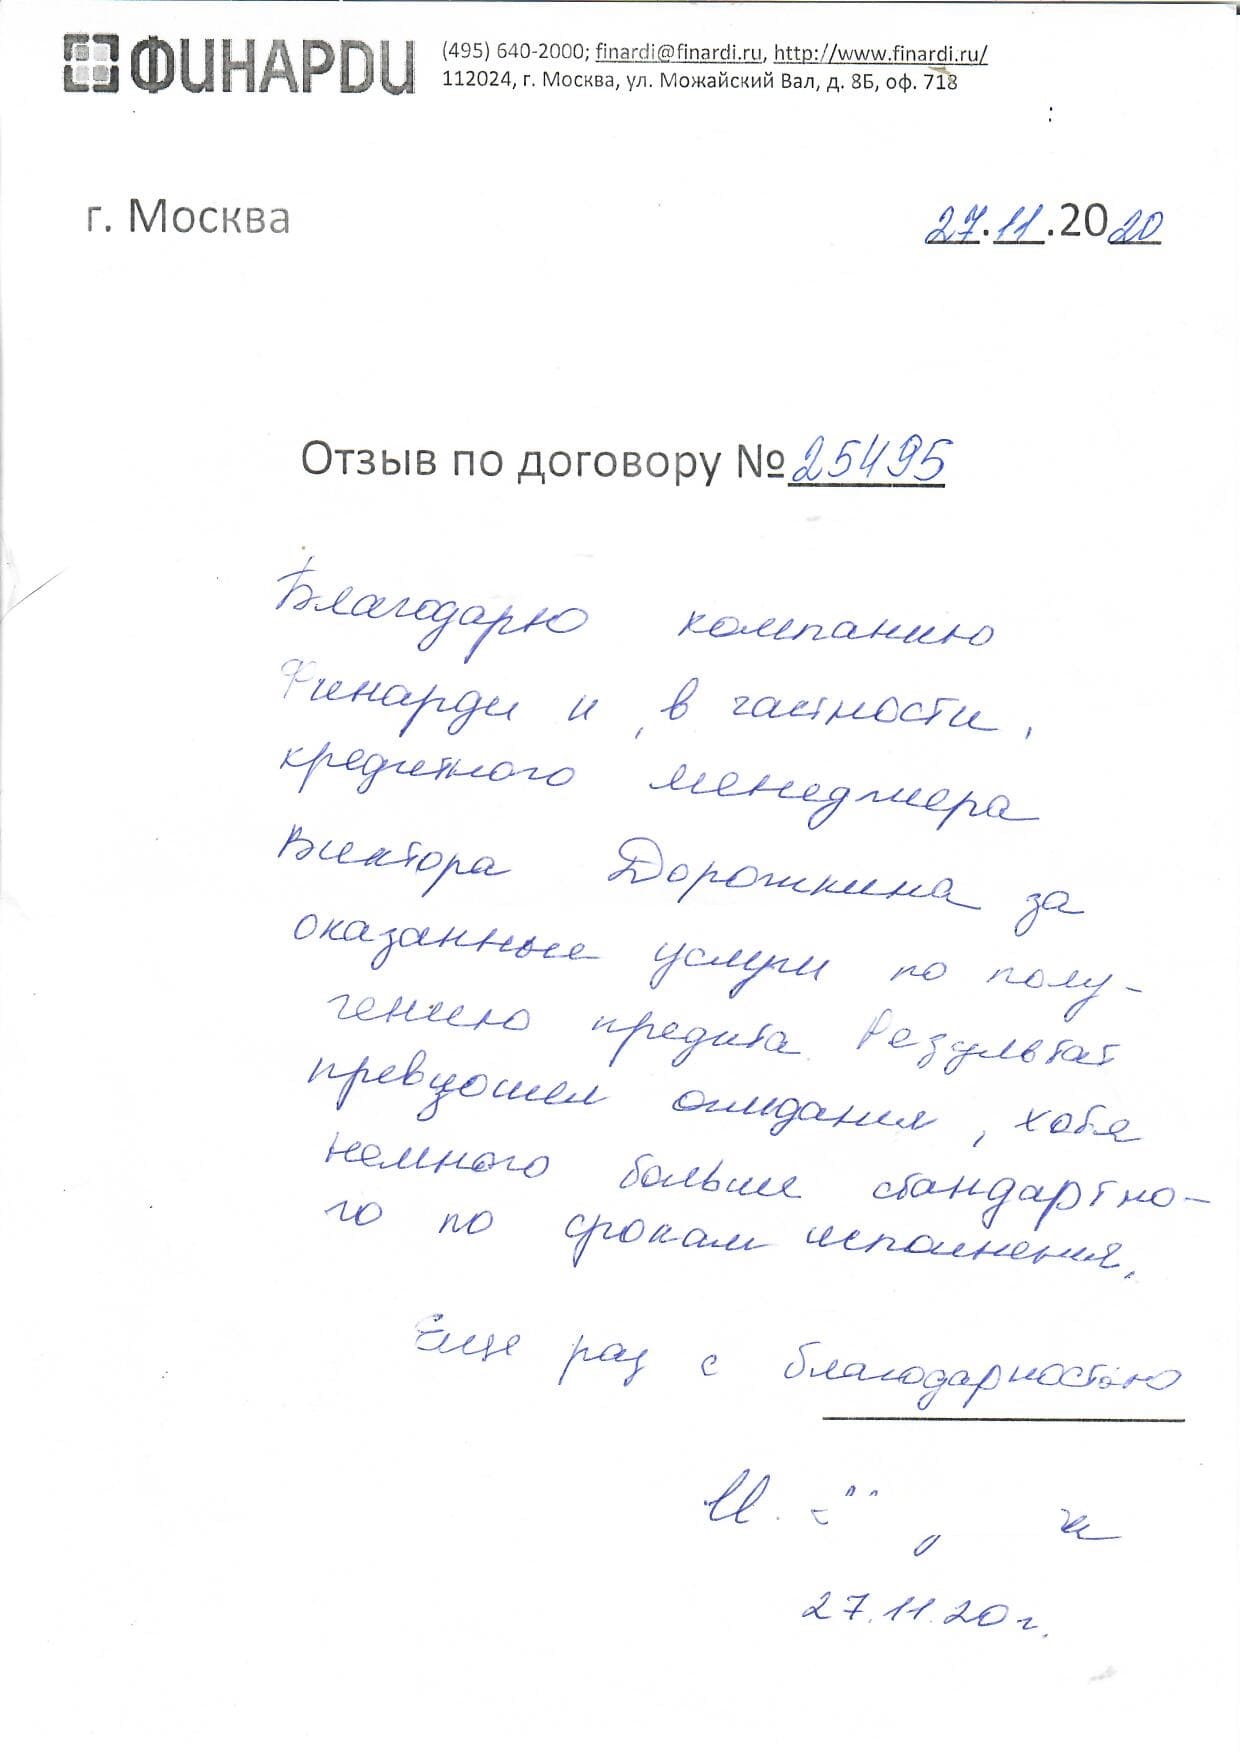 ФИНАРДИ
(495) 640-2000; finardi@finardi.ru, http://www.finardi.ru/
112024, г. Москва, ул. Можайский Вал, д. 8Б, оф. 718
г. Москва
27.11.2020
Отзыв по договору №25495
Благодарю компанию
Финарди и, в частности,
кредитного менеджера
Виктора Дорожкина за
оказанные услуги по полу-
чению кредита. Результат
превзошел ожидания, хотя
немного больше стандартно-
го по срокам исполнения.
Еще раз с благодарностью
27.11.20г.